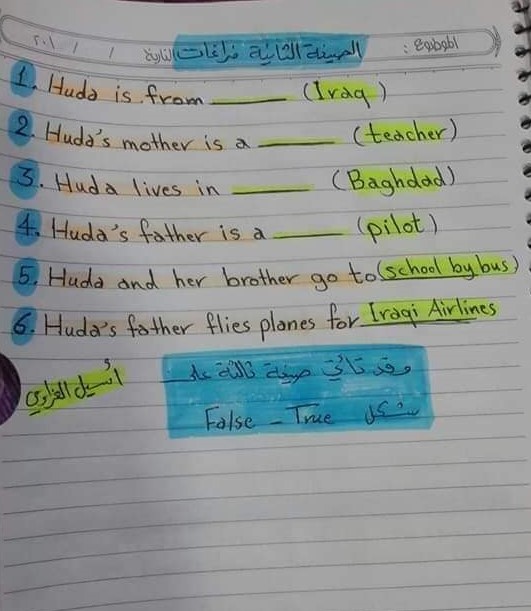 الموضوع : الصيغة الثانية فراغات التاريخ / / ٢٠١
1. Huda is from ______ (Iraq)
2. Huda's mother is a ______ (teacher)
3. Huda lives in ______ (Baghdad)
4. Huda's father is a ______ (pilot)
5. Huda and her brother go to (school by bus)
6. Huda's father flies planes for Iraqi Airlines
وقد تأتي صيغة ثالثة على
شكل False - True
أسيل العزاوي